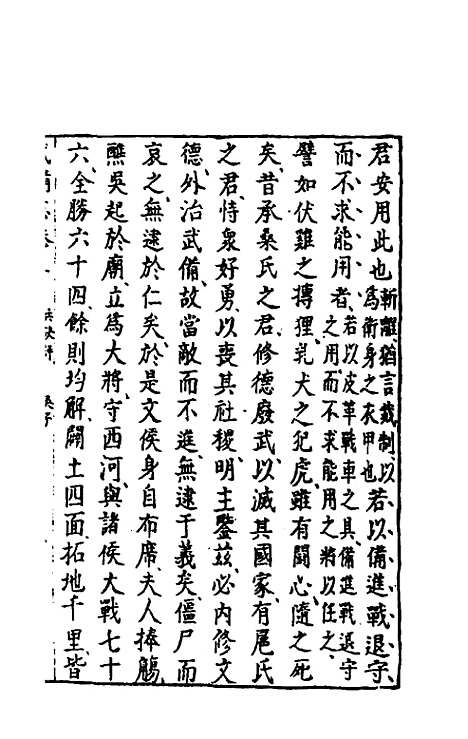 君安用此也斬離猶言裁制以為衛身之衣甲也若以備進戰退守
而不求能用者若以皮革戰車之具備進戰退守之用而不求能用之將以任之
譬如伏雞之搏狸乳犬之犯虎雖有鬪心隨之死
矣昔承桑氏之君修德廢武以滅其國家有扈氏
之君恃衆好勇以喪其社稷明主鑒茲必內修文
德外治武備故當敵而不進無逮于義矣僵尸而
哀之無逮於仁矣於是文侯身自布席夫人捧觴
醮吳起於廟立爲大將守西河與諸侯大戰七十
六全勝六十四餘則均解闢土四面拓地千里皆